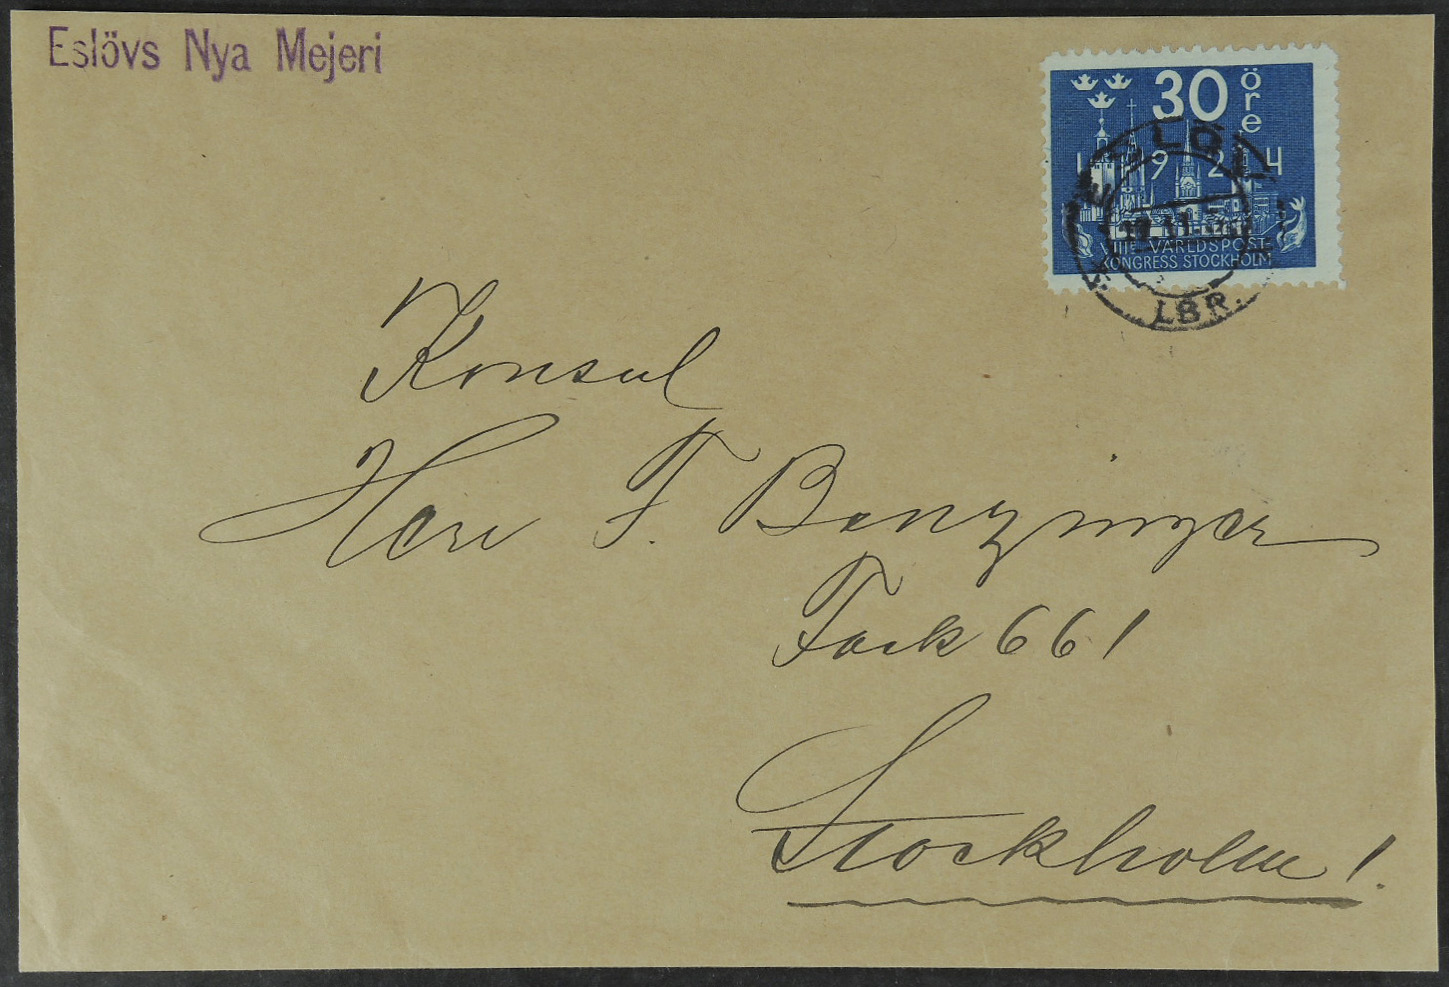 Eslövs Nya Mejeri
30 öre
1924
VIII:E VÄRLDSPOST-
KONGRESS STOCKHOLM
ESLÖV
LBR.
Konsul
Herr F. Benzinger
Fack 661
Stockholm 1.